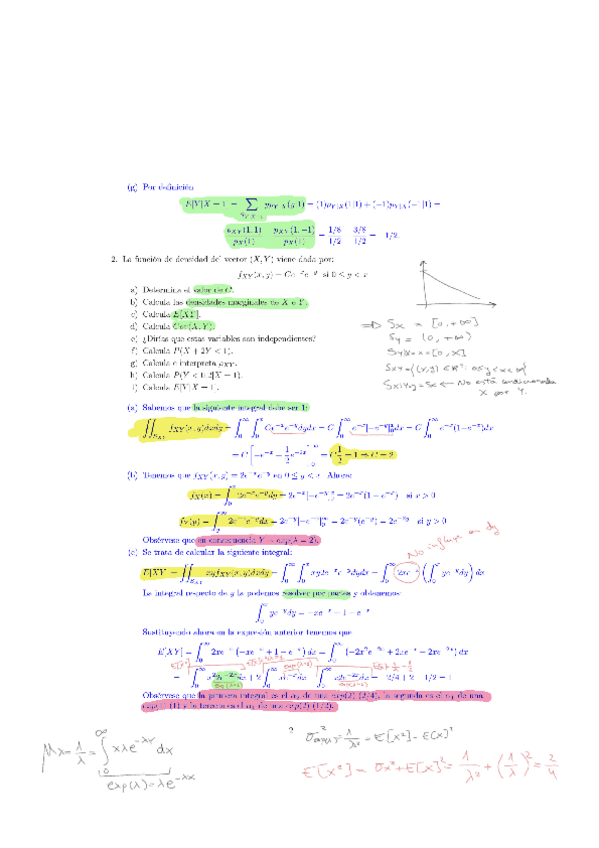 (g) Por definición
E[Y|X = 1] = ∑ y p_{Y|X=1}(y|1) = (1)p_{Y|X}(1|1) + (−1)p_{Y|X}(−1|1) =
p_{XY}(1, 1) / p_X(1) − p_{XY}(1, −1) / p_X(1) = 1/8 / 1/2 − 3/8 / 1/2 = −1/2.
2. La función de densidad del vector (X, Y) viene dada por:
f_{XY}(x, y) = Ce^{−x}e^{−y} si 0 ≤ y < x
a) Determina el valor de C.
b) Calcula las densidades marginales de X e Y.
c) Calcula E[XY].
d) Calcula Cov(X, Y).
e) ¿Dirías que estas variables son independientes?
f) Calcula P(X + 2Y < 1).
g) Calcula e interpreta ρ_{XY}.
h) Calcula P(Y < 0.2|X = 1).
i) Calcula E[Y|X = 1].
=> S_X = [0, +∞]
S_Y = (0, +∞)
S_{Y|X=x} = [0, x]
S_{X|Y=y} = S_X ← No está condicionada
X por Y.
(a) Sabemos que la siguiente integral debe ser 1:
∬_{S_{XY}} f_{XY}(x, y)dxdy = ∫_0^∞ ∫_0^x Ce^{−x}e^{−y}dydx = C ∫_0^∞ e^{−x}[−e^{−y}]_0^x dx = C ∫_0^∞ e^{−x}(1−e^{−x})dx
= C [−e^{−x} + 1/2 e^{−2x}]_0^∞ = C 1/2 = 1 ⇒ C = 2
(b) Tenemos que f_{XY}(x, y) = 2e^{−x}e^{−y} en 0 ≤ y < x. Ahora:
f_X(x) = ∫_0^x 2e^{−x}e^{−y}dy = 2e^{−x}[−e^{−y}]_0^x = 2e^{−x}(1 − e^{−x}) si x > 0
f_Y(y) = ∫_y^∞ 2e^{−x}e^{−y}dx = 2e^{−y}[−e^{−x}]_y^∞ = 2e^{−y}(e^{−y}) = 2e^{−2y} si y > 0
Obsérvese que en consecuencia Y ∼ exp(λ = 2).
No influye en dy
(c) Se trata de calcular la siguiente integral:
E[XY] = ∬_{S_{XY}} xyf_{XY}(x, y)dxdy = ∫_0^∞ ∫_0^x xy2e^{−x}e^{−y}dydx = ∫_0^∞ 2xe^{−x} (∫_0^x ye^{−y}dy) dx
La integral respecto de y la podemos resolver por partes y obtenemos:
∫_0^x ye^{−y}dy = −xe^{−x} + 1 − e^{−x}
Sustituyendo ahora en la expresión anterior tenemos que
E[XY] = ∫_0^∞ 2xe^{−x} (−xe^{−x} + 1 − e^{−x}) dx = ∫_0^∞ (−2x²e^{−2x} + 2xe^{−x} − 2xe^{−2x}) dx
= −∫_0^∞ x²2e^{−2x}dx + 2 ∫_0^∞ xe^{−x}dx − ∫_0^∞ x2e^{−2x}dx = −2/4 + 2 − 1/2 = 1
Obsérvese que la primera integral es el α₂ de una exp(2) (2/4), la segunda es el α₁ de una
exp(1) (1) y la tercera es el α₁ de una exp(2) (1/2).
2
μ_X = 1/λ = ∫_0^∞ xλe^{−λx} dx
exp(λ) = λe^{−λx}
σ²_{exp(λ)} = 1/λ² = E[x²] − E(x)²
E[x²] = σ_x² + E[x]² = 1/λ² + (1/λ)² = 2/4